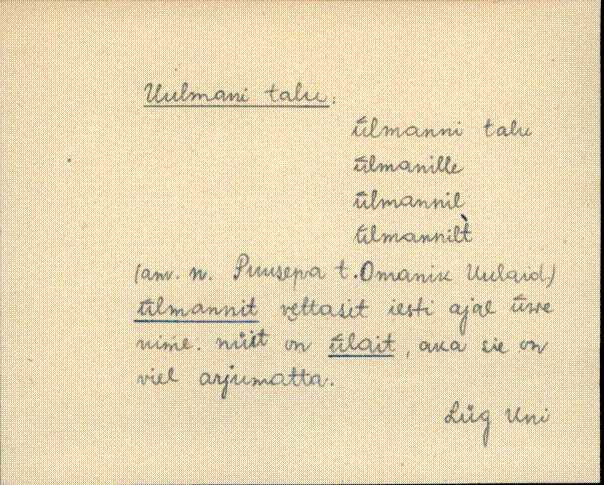 Uulmani talu:
ūlmanni talu
ūlmanille
ūlmannil
ūlmannilt
(am. n. Puusepa t. Omanik Uulaid)
ūlmannit vettasit iesti ajal ūwe
nime. nüit on ūlait, aka sie on
viel arjumatta.
Lüg Uni